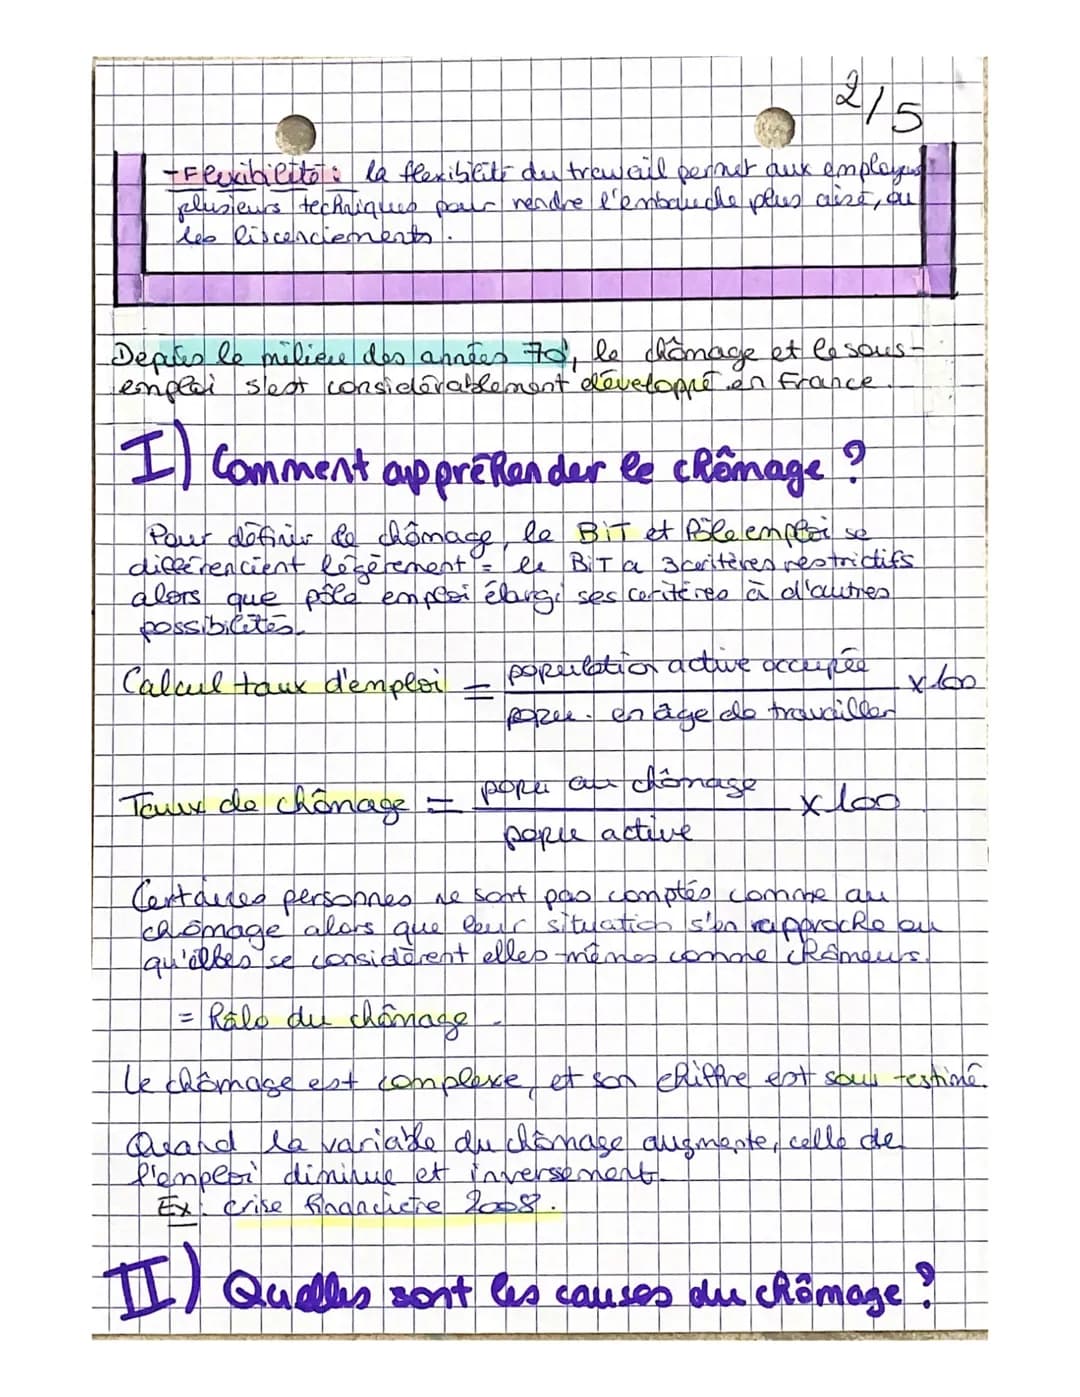 2/5
- Flexibilité : la flexibilité du travail permet aux employeurs
plusieurs techniques pour rendre l'embauche plus aisé, ou
les liscenciements.
Depuis le milieu des années 70', le chômage et le sous-
emploi s'est considérablement développé en France.
I) Comment appréhender le chômage ?
Pour définir le chômage, le BiT et Pôle emploi se
différencient légèrement = le BiT a 3 critères restrictifs
alors que pôle emploi élargi ses critères à d'autres
possibilités.
Calcul taux d'emploi = population active occupée x 100
popu. en âge de travailler
Taux de chômage = popu au chômage x 100
popu active
Certaines personnes ne sont pas comptés comme au
chômage alors que leur situation s'en rapproche ou
qu'elles se considèrent elles-mêmes comme chômeurs.
= Halo du chômage.
Le chômage est complexe, et son chiffre est sous-estimé.
Quand la variable du chômage augmente, celle de
l'emploi diminue et inversement.
Ex : crise financière 2008.
II) Quelles sont les causes du chômage ?